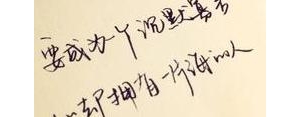 要成为个沉默寡言
却拥有一片海的人